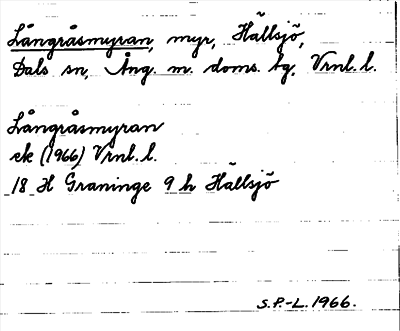 Långråsmyran, myr, Hällsjö,
Dals sn, Ång. m. doms. tg, Vrnl. l.
Långråsmyran
ek (1966) Vrnl. l.
18 H Graninge 9 h Hällsjö
S.P.-L. 1966.